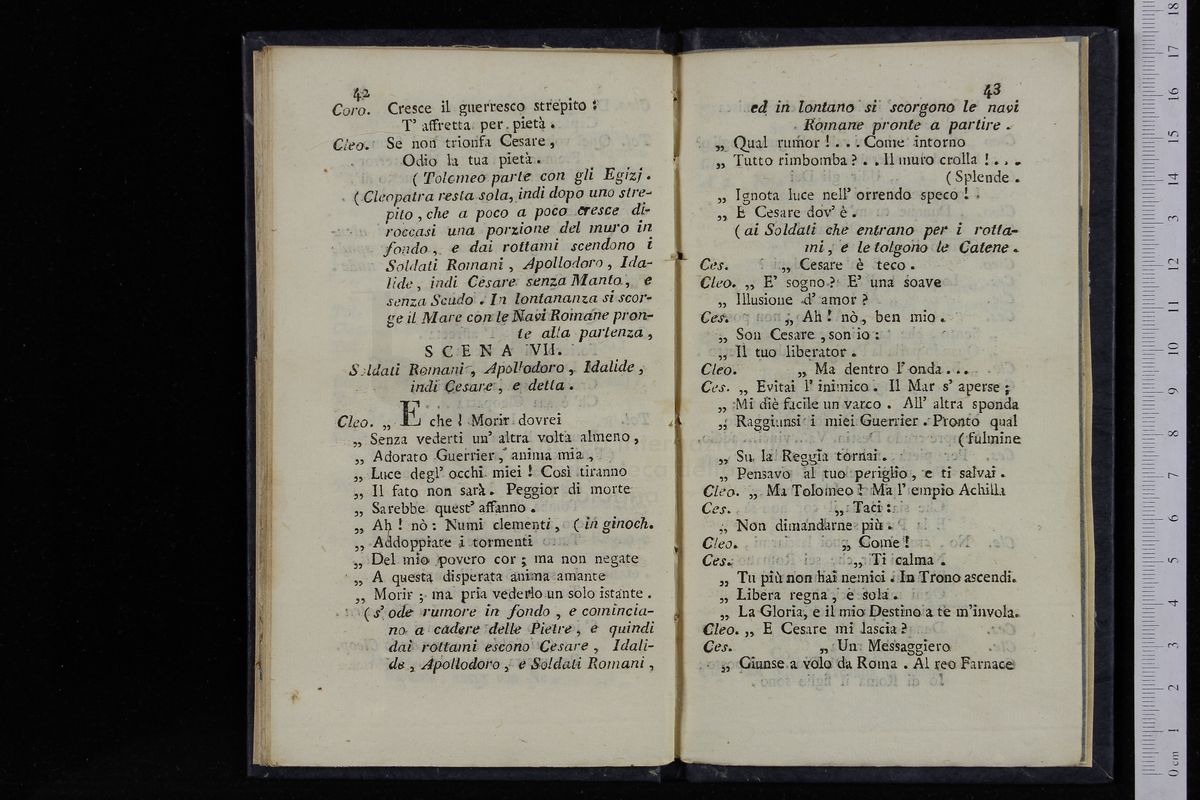 42
Coro. Cresce il guerresco strepito :
T' affretta per pietà .
Cleo. Se non trionfa Cesare ,
Odio la tua pietà .
( Tolemeo parte con gli Egizj .
( Cleopatra resta sola, indi dopo uno stre-
pito , che a poco a poco cresce di-
roccasi una porzione del muro in
fondo , e dai rottami scendono i
Soldati Romani , Apollodoro , Ida-
lide , indi Cesare senza Manto , e
senza Scudo . In lontananza si scor-
ge il Mare con le Navi Romane pron-
te alla partenza ,
SCENA VII.
Soldati Romani , Apollodoro , Idalide ,
indi Cesare , e detta .
Cleo. „ E che ! Morir dovrei
„ Senza vederti un' altra volta almeno ,
„ Adorato Guerrier , anima mia ,
„ Luce degl' occhi miei ! Così tiranno
„ Il fato non sarà . Peggior di morte
„ Sarebbe quest' affanno .
„ Ah ! nò : Numi clementi , ( in ginoch.
„ Addoppiate i tormenti
„ Del mio povero cor ; ma non negate
„ A questa disperata anima amante
„ Morir ; ma pria vederlo un solo istante .
( s' ode rumore in fondo , e comincia-
no a cadere delle Pietre , e quindi
dai rottami escono Cesare , Idali-
de , Apollodoro , e Soldati Romani ,
43
ed in lontano si scorgono le navi
Romane pronte a partire .
„ Qual rumor ! . . . Come intorno
„ Tutto rimbomba ? . . Il muro crolla ! . . .
( Splende .
„ Ignota luce nell' orrendo speco ! .
„ E Cesare dov' è .
( ai Soldati che entrano per i rotta-
mi , e le tolgono le Catene .
Ces. „ Cesare è teco .
Cleo. „ E' sogno ? E' una soave
„ Illusione d' amor ?
Ces. „ Ah ! nò , ben mio .
„ Son Cesare , son io :
„ Il tuo liberator .
Cleo. „ Ma dentro l' onda . . .
Ces. „ Evitai l' inimico . Il Mar s' aperse ;
„ Mi diè facile un varco . All' altra sponda
„ Raggiunsi i miei Guerrier . Pronto qual
( fulmine
„ Su la Reggia tornai .
„ Pensavo al tuo periglio , e ti salvai .
Cleo. „ Ma Tolomeo ? Ma l' empio Achilla
Ces. „ Taci :
„ Non dimandarne più .
Cleo. „ Come !
Ces. „ Ti calma .
„ Tu più non hai nemici . In Trono ascendi.
„ Libera regna , e sola .
„ La Gloria, e il mio Destino a te m'invola.
Cleo. „ E Cesare mi lascia ?
Ces. „ Un Messaggiero
„ Giunse a volo da Roma . Al reo Farnace
0 cm 1 2 3 4 5 6 7 8 9 10 11 12 13 14 15 16 17 18